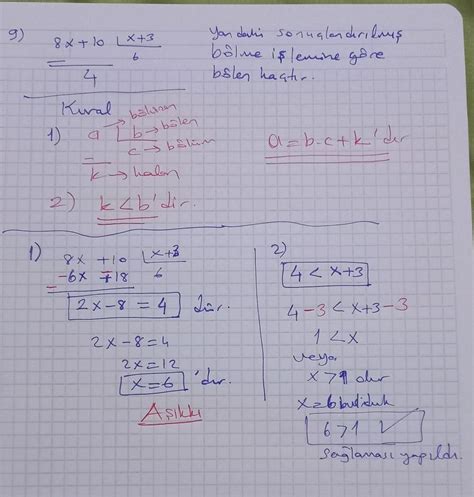 9) 8x+10 | x+3 Yandaki sonuçlandırılmış
6 bölme işlemine göre
4 bölen kaçtır.
Kural
1) a → bölünen
b → bölen
c → bölüm
k → kalan
a = b·c + k'dır
2) k < b'dir.
1) 8x +10 | x+3
-6x +18 6
2x-8 = 4 dür.
2x-8=4
2x=12
x=6 'dır.
A şıkkı
2)
4 < x+3
4-3 < x+3-3
1 < x
veya
x > 1 olur
x=6 bulduk
6>1 ✓
sağlaması yapıldı.